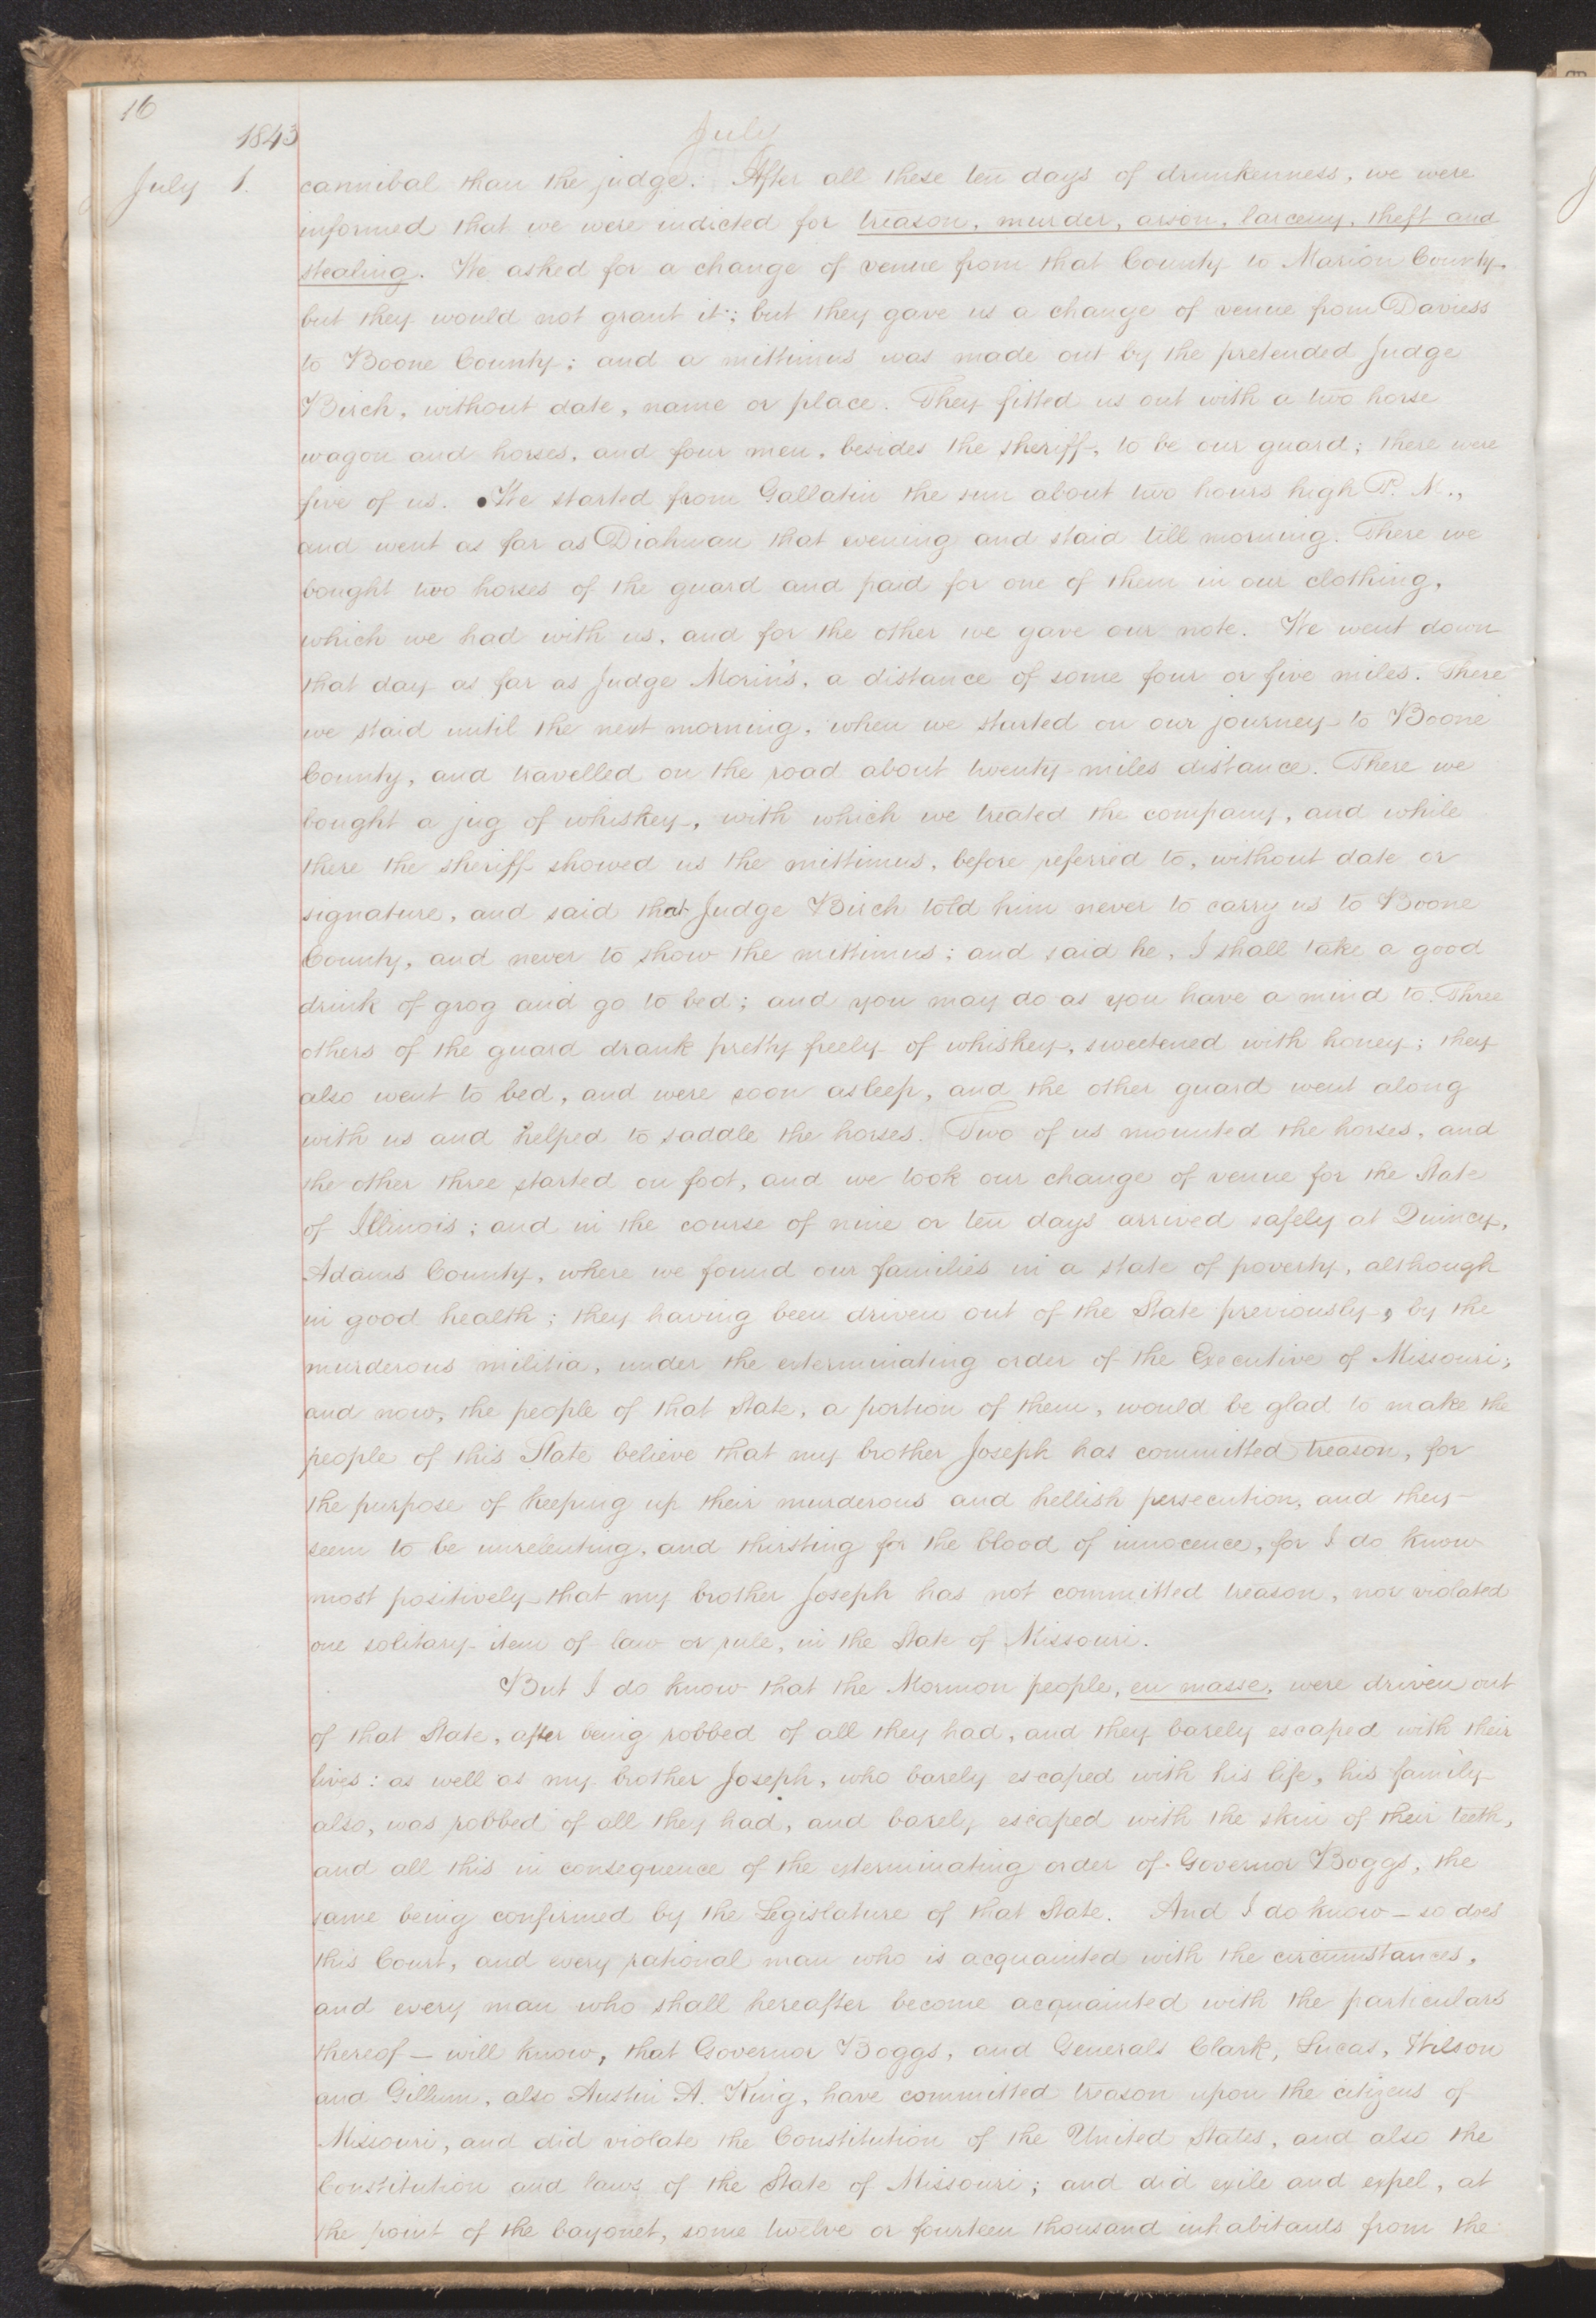 16
1843
July
July 1. cannibal than the judge. After all these ten days of drunkenness, we were
informed that we were indicted for treason, murder, arson, larceny, theft and
stealing. We asked for a change of venue from that County to Marion County,
but they would not grant it; but they gave us a change of venue from Daviess
to Boone County; and a mittimus was made out by the pretended Judge
Birch, without date, name or place. They fitted us out with a two horse
wagon and horses, and four men, besides the sheriff, to be our guard; there were
five of us. We started from Gallatin the sun about two hours high P. M.,
and went as far as Diahman that evening and staid till morning. There we
bought two horses of the guard and paid for one of them in our clothing,
which we had with us, and for the other we gave our note. We went down
that day as far as Judge Morin's, a distance of some four or five miles. There
we staid until the next morning, when we started on our journey to Boone
County, and travelled on the road about twenty miles distance. There we
bought a jug of whiskey, with which we treated the company, and while
there the sheriff showed us the mittimus, before referred to, without date or
signature, and said that Judge Birch told him never to carry us to Boone
County, and never to show the mittimus; and said he, I shall take a good
drink of grog and go to bed; and you may do as you have a mind to. Three
others of the guard drank pretty freely of whiskey, sweetened with honey; they
also went to bed, and were soon asleep, and the other guard went along
with us and helped to saddle the horses. Two of us mounted the horses, and
the other three started on foot, and we took our change of venue for the State
of Illinois; and in the course of nine or ten days arrived safely at Quincy,
Adams County, where we found our families in a state of poverty, although
in good health; they having been driven out of the State previously, by the
murderous militia, under the exterminating order of the Executive of Missouri;
and now, the people of that State, a portion of them, would be glad to make the
people of this State believe that my brother Joseph has committed treason, for
the purpose of keeping up their murderous and hellish persecution, and they
seem to be unrelenting, and thirsting for the blood of innocence, for I do know
most positively that my brother Joseph has not committed treason, nor violated
one solitary item of law or rule, in the State of Missouri.
But I do know that the Mormon people, en masse, were driven out
of that State, after being robbed of all they had, and they barely escaped with their
lives: as well as my brother Joseph, who barely escaped with his life, his family
also, was robbed of all they had, and barely escaped with the skin of their teeth,
and all this in consequence of the exterminating order of Governor Boggs, the
same being confirmed by the Legislature of that State. And I do know — so does
this Court, and every rational man who is acquainted with the circumstances,
and every man who shall hereafter become acquainted with the particulars
thereof — will know, that Governor Boggs, and Generals Clark, Lucas, Wilson
and Gillum, also Austin A. King, have committed treason upon the citizens of
Missouri, and did violate the Constitution of the United States, and also the
Constitution and laws of the State of Missouri; and did exile and expel, at
the point of the bayonet, some twelve or fourteen thousand inhabitants from the